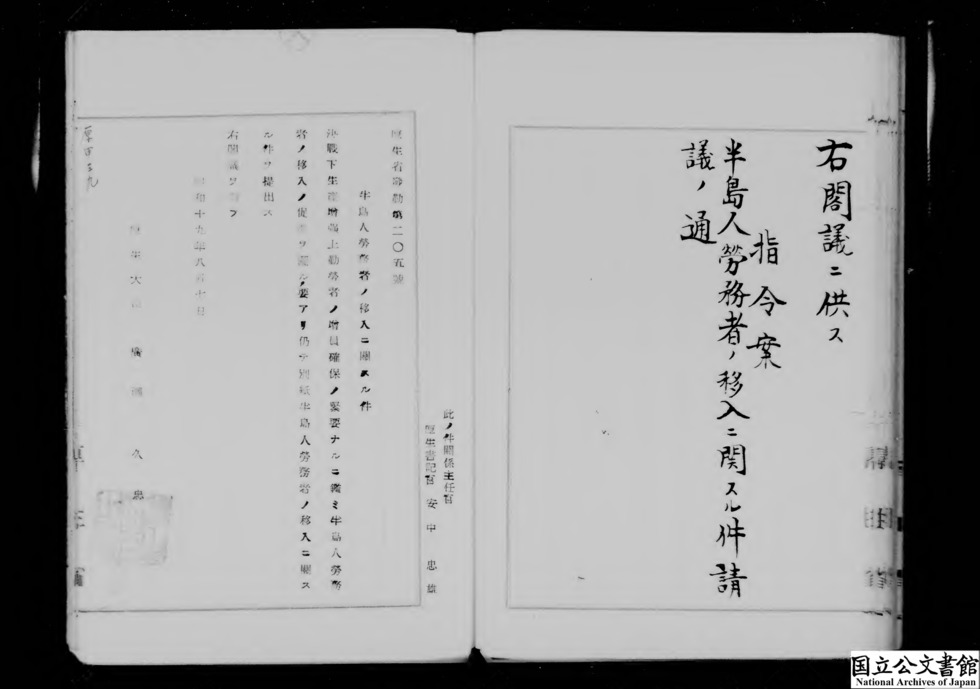 右閣議ニ供ス
指令案
半島人勞務者ノ移入ニ関スル件請
議ノ通
此ノ件關係主任官
厚生書記官 安中忠雄
厚生省發勤第二〇五號
半島人勞務者ノ移入ニ關スル件
決戰下生產增強上勤勞者ノ增員確保ノ緊要ナルニ鑑ミ半島人勞務
者ノ移入ノ促進ヲ圖ルノ要アリ仍テ別紙半島人勞務者ノ移入ニ關ス
ル件ヲ提出ス
右閣議ヲ請フ
昭和十九年八月十日
厚生大臣 廣瀨久忠
厚百三九
国立公文書館
National Archives of Japan